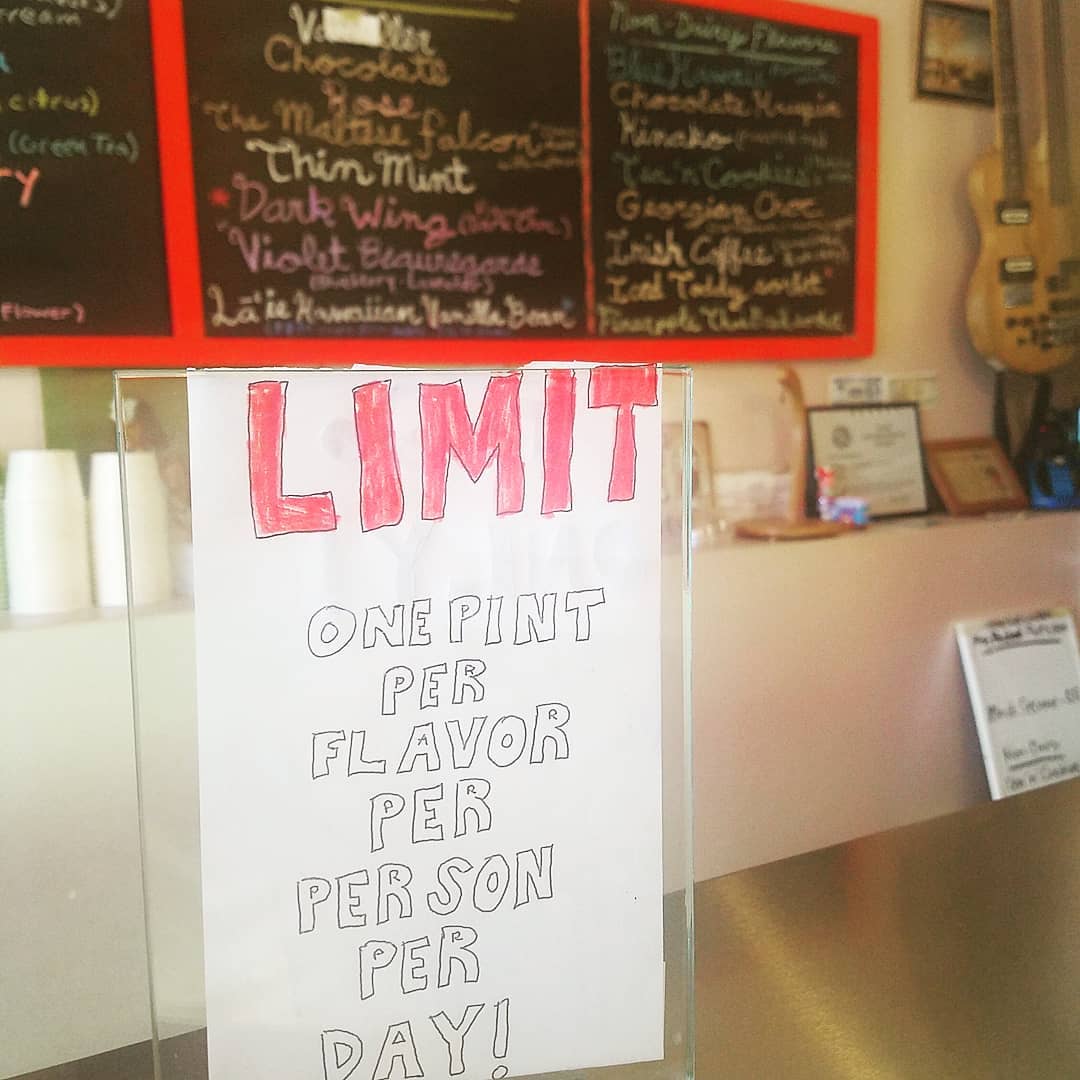 ream
citrus)
(Green Tea)
ry
Flower)
Chocolate
Rose
The Maltese Falcon
Thin Mint
*Dark Wing
Violet Beauregarde
Lā'ie Hawaiian Vanilla Bean
Non-Dairy Flavors
Blue Hawaii
Chocolate Haupia
Kinako
Tea 'n Cookies
Georgian Choc
Irish Coffee
Iced Toddy sorbet
Pineapple
LIMIT
ONE PINT
PER
FLAVOR
PER
PERSON
PER
DAY!